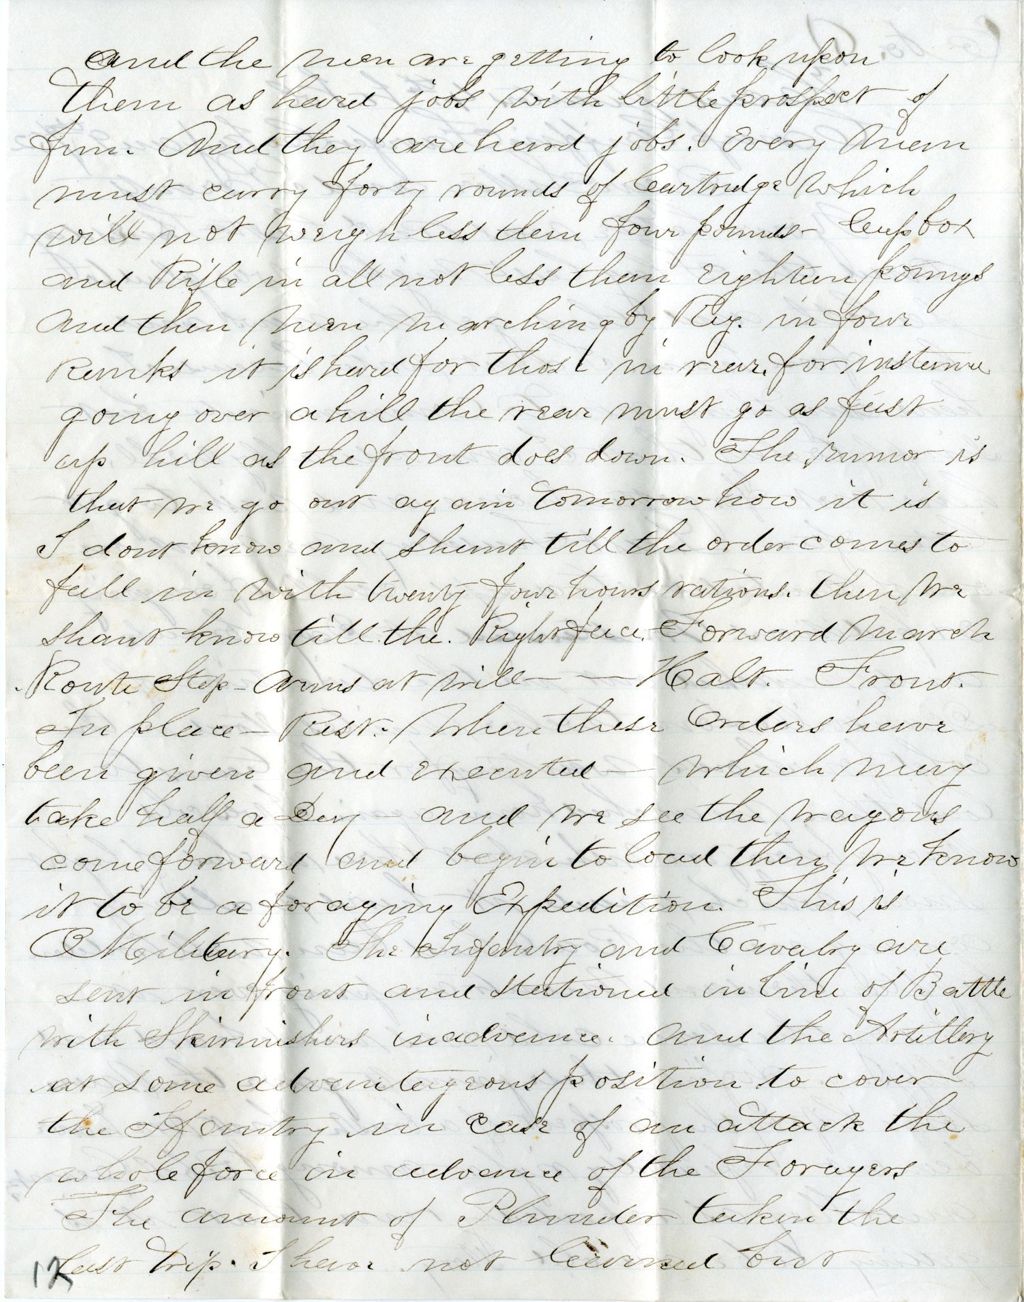 and the men are getting to look upon
them as hard jobs with little prospect of
fun. And they are hard jobs. Every man
must carry forty rounds of Cartridge which
will not weigh less than four pounds - Cupbox
and Rifle in all not less than eighteen pounds
and then men marching by Reg. in four
Ranks it is hard for those in rear, for instance
going over a hill the rear must go as fast
up hill as the front does down. The rumor is
that we go out again tomorrow how it is
I dont know and shant till the order comes to
fall in with twenty four hours rations. then we
shant know till the. Right face. Forward March
Route Step - Arms at will - - Halt. Front.
In place - Rest. When these Orders have
been given and executed - which may
take half a Day - and we see the wagons
come forward and begin to load then we know
it to be a foraging Expedition. This is
Military. The Infantry and Cavalry are
sent in front and stationed in line of Battle
with Skirmishers in advance. and the Artillery
at some advantageous position to cover
the Ifantry in case of an attack the
whole force in advance of the Forayers
The amount of Plunder taken the
last trip. I have not learned but
12